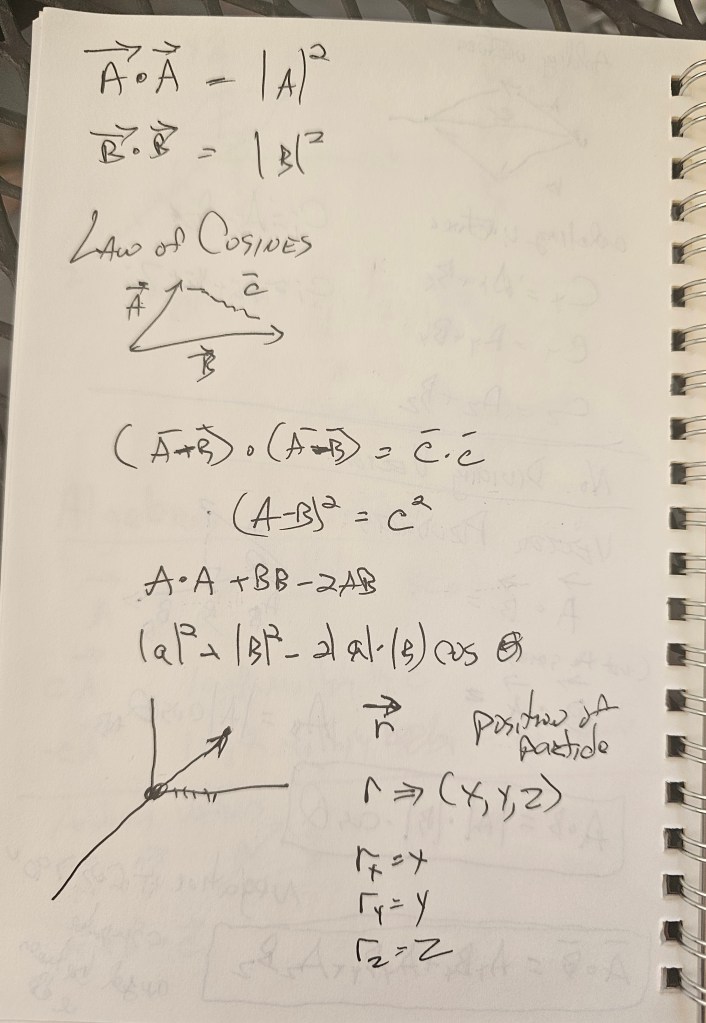 A⃗ • A⃗ = |A|²
B⃗ • B⃗ = |B|²
LAW of COSINES
A⃗
c̄
B⃗
(A⃗-B⃗) • (A⃗-B⃗) = c̄ . c̄
(A-B)² = c²
A•A + BB - 2AB
|a|² + |B|² - 2|a|•|B| cos θ
r⃗ position of A particle
r ⇒ (x, y, z)
r_x = x
r_y = y
r_z = z